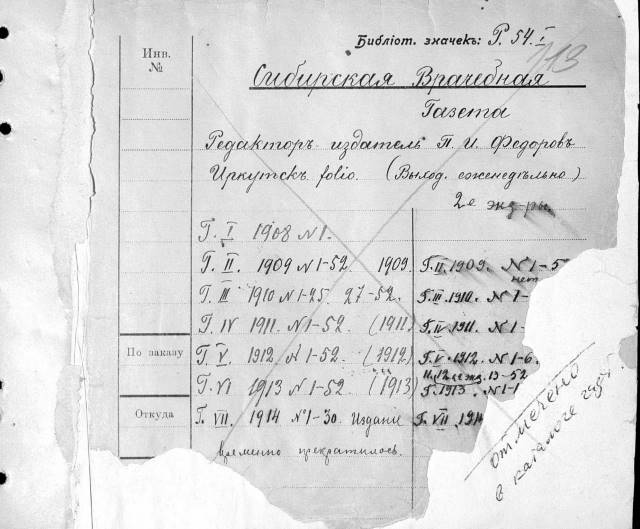 Библіот. значекъ: Р. 54. I
113
Инв.
№
Сибирская Врачебная
Газета
Редакторъ издатель П. И. Федоровъ
Иркутскъ folio. (Выход. еженедѣльно)
2е экз-ры
Г. I 1908 N 1.
Г. II. 1909 N 1-52. 1909.
Г. II. 1909. N 1-5
нет
Г. III 1910 N 1-25. 27-52.
Г. III. 1910. N 1-
Г. IV 1911. N 1-52. (1911)
Г. IV 1911. N 1-
По заказу
Г. V. 1912. N 1-52. (1912)
Г. V. 1912. N 1-6.
13-52
Г. VI 1913 N 1-52 (1913)
Г. 1913. N 1-1
Откуда
Г. VII. 1914 N° 1-30. Издани
Г. VII 1914
временно прекратилось.
отмечено
в каталоге